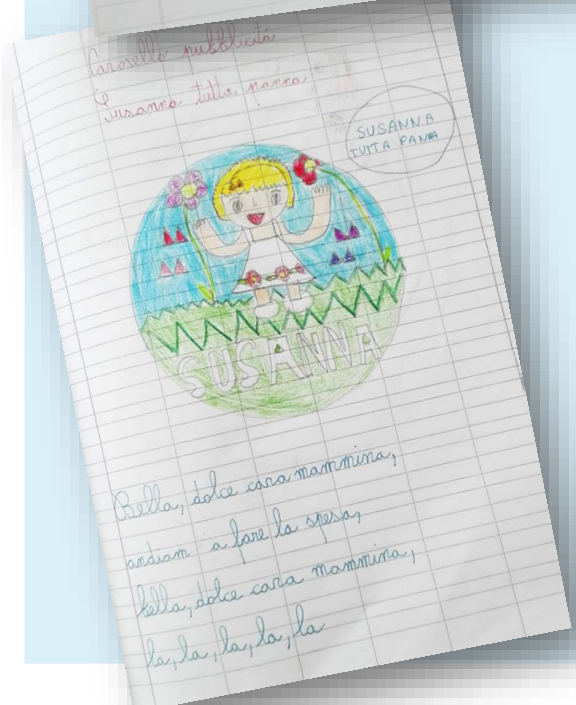 Carosello pubblicità
È
Susanna tutta panna
SUSANNA
TUTTA PANNA
SUSANNA
Bella, dolce cara mammina,
andiam a fare la spesa,
bella, dolce cara mammina,
la, la, la, la, la